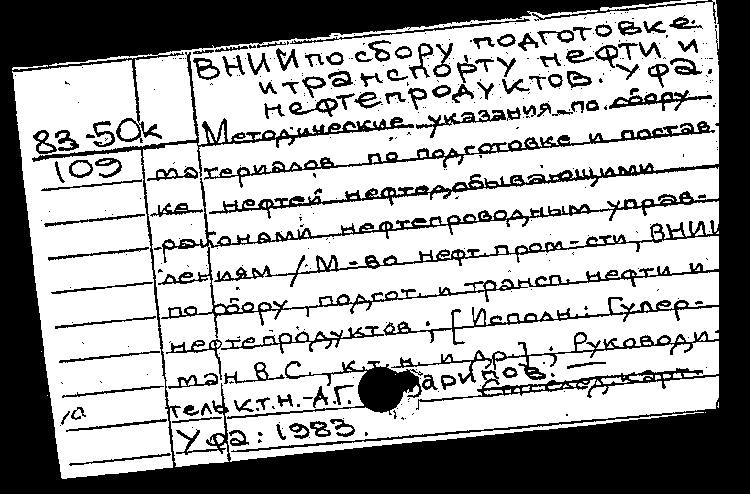 ВНИИ по сбору, подготовке
и транспорту нефти и
нефтепродуктов. Уфа.
83-50к
109
Методические указания по сбору
материалов по подготовке и постав-
ке нефтей нефтедобывающими
районами нефтепроводным управ-
лениям / М-во нефт. пром-сти, ВНИИ
по сбору, подгот. и трансп. нефти и
нефтепродуктов; [Исполн.: Гулер-
ман В.С., к.т.н. и др.]; Руководи-
тель к.т.н. А.Г.
Уфа: 1983.